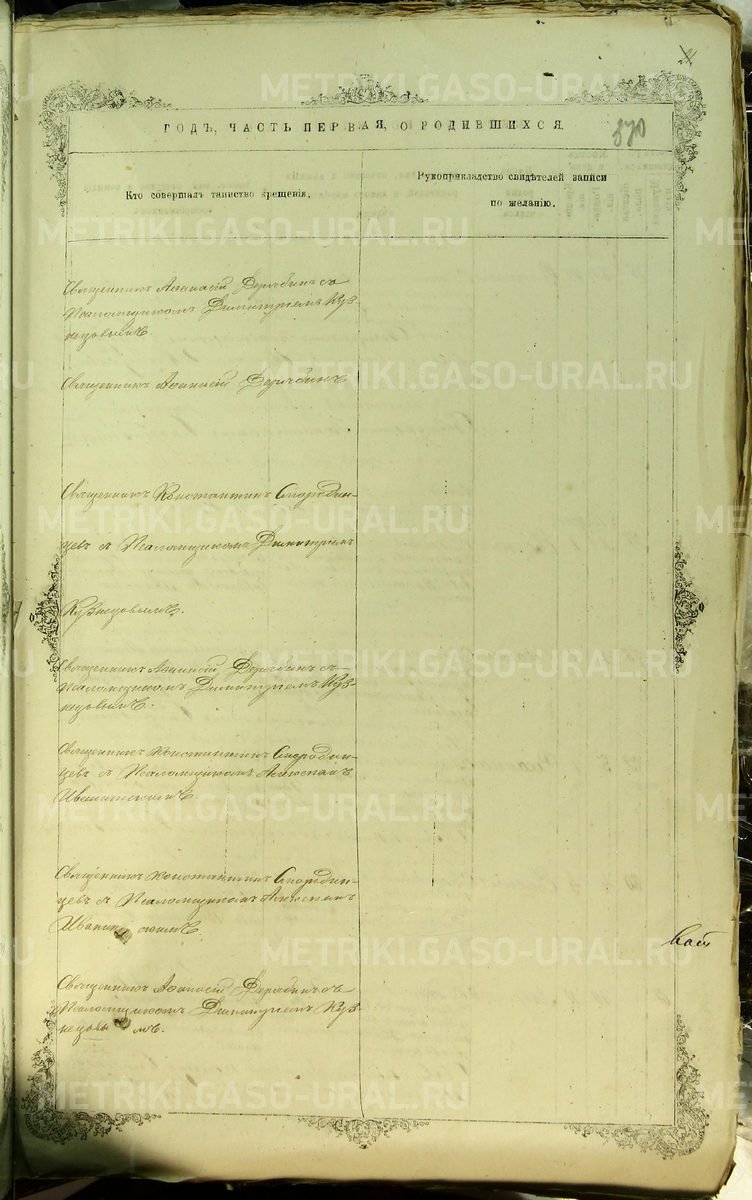 ГОДЪ, ЧАСТЬ ПЕРВАЯ, О РОДИВШИХСЯ.
370
Кто совершалъ таинство крещенія.
Рукоприкладство свидѣтелей записи
по желанію.
Священникъ Аѳанасій Дерябинъ съ
Псаломщикомъ Димитріемъ Куз-
нецовымъ.
Священникъ Аѳанасій Дерябинъ
Священникъ Константинъ Спородин-
цевъ съ Псаломщикомъ Димитріемъ
Кузнецовымъ.
Священникъ Аѳанасій Дерябинъ съ
Псаломщикомъ Димитріемъ Куз-
нецовымъ.
Священникъ Константинъ
цевъ съ Псаломщикомъ
Священникъ Константинъ
цевъ съ Псаломщикомъ
Священникъ Аѳанасій Дерябинъ съ
Псаломщикомъ Димитріемъ Куз-
нецовымъ.
METRIKI.GASO-URAL.RU